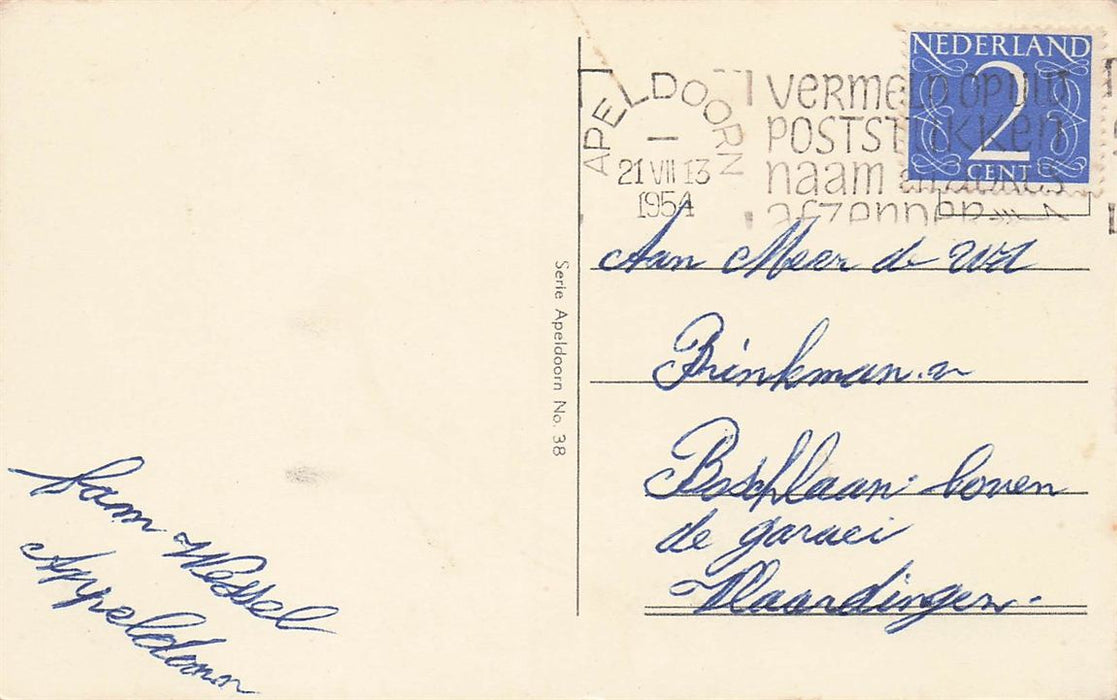 NEDERLAND
2
CENT
APELDOORN
21 VII 13
1954
VERMELD OP UW
POSTSTUKKEN
naam en adres
afzender
Serie Apeldoorn No. 38
Aan Meer de Wd
Brinkman.
Boschlaan boven
de garaei
Vlaardingen.
fam Wessel
Appeldoorn